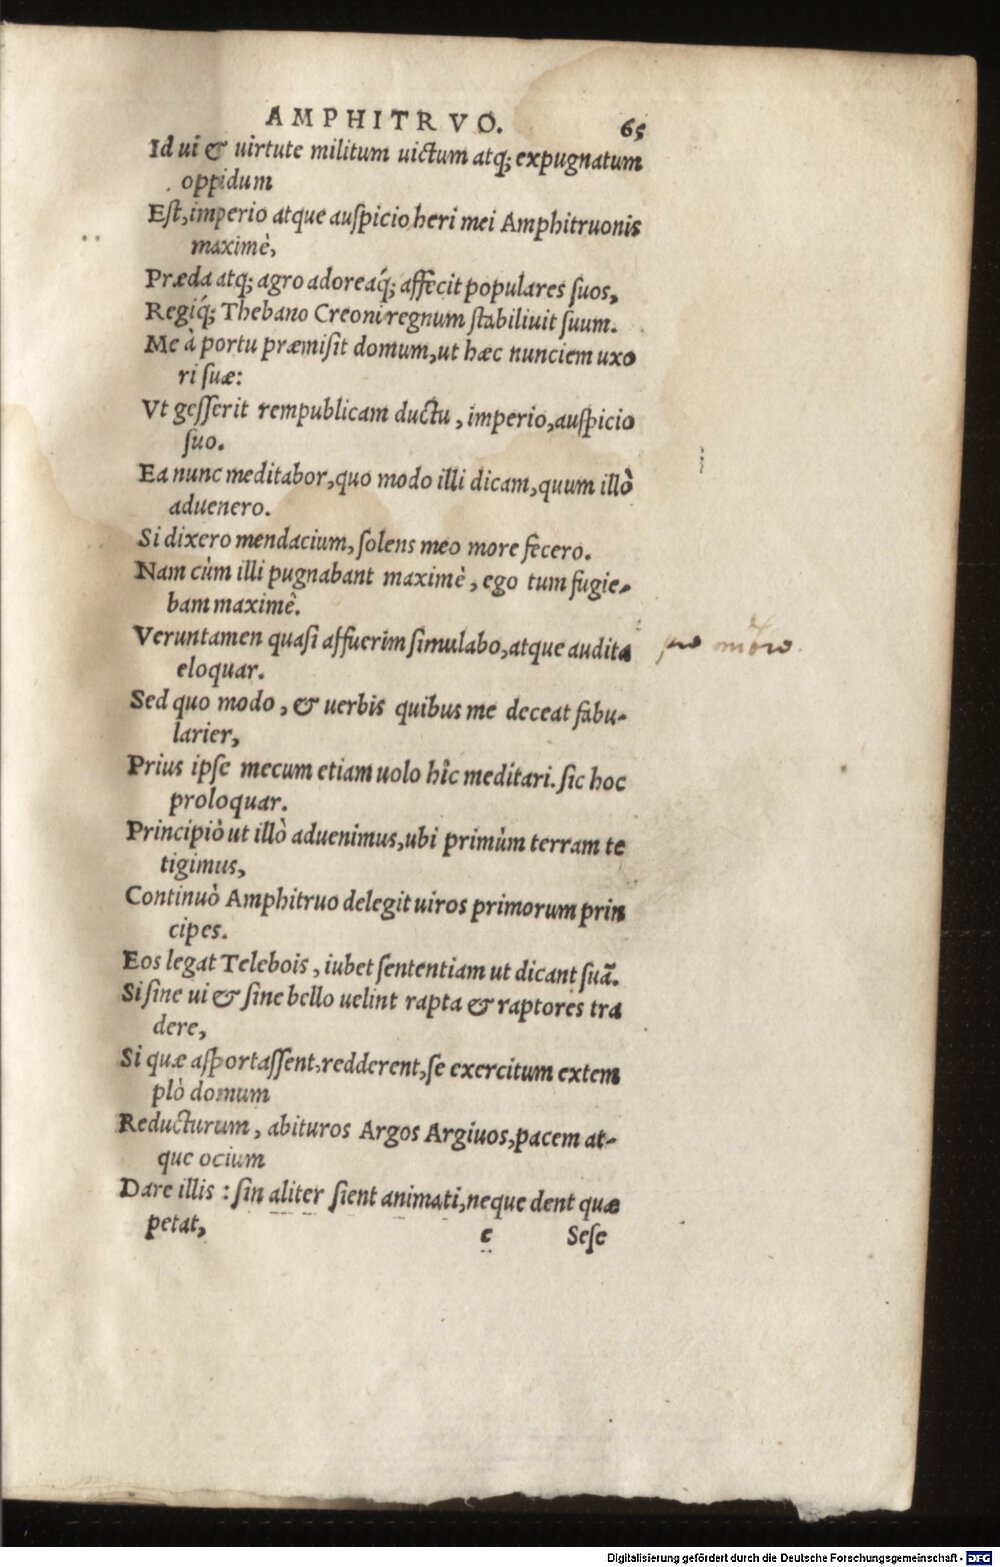 AMPHITRVO. 65
Id ui & uirtute militum uictum atq; expugnatum
oppidum
Eſt, imperio atque auſpicio heri mei Amphitruonis
maximè,
Præda atq; agro adoreaq́; affecit populares ſuos,
Regiq́; Thebano Creoni regnum ſtabiliuit ſuum.
Me à portu præmiſit domum, ut hæc nunciem uxo
ri ſuæ:
Vt geſſerit rempublicam ductu, imperio, auſpicio
ſuo.
Ea nunc meditabor, quo modo illi dicam, quum illò
aduenero.
Si dixero mendacium, ſolens meo more fecero.
Nam cùm illi pugnabant maximè, ego tum fugie-
bam maximè.
Veruntamen quaſi affuerim ſimulabo, atque audita
eloquar.
Sed quo modo, & uerbis quibus me deceat fabu-
larier,
Prius ipſe mecum etiam uolo hîc meditari. ſic hoc
proloquar.
Principiò ut illò aduenimus, ubi primùm terram te
tigimus,
Continuò Amphitruo delegit uiros primorum prin
cipes.
Eos legat Telebois, iubet ſententiam ut dicant ſuã.
Si ſine ui & ſine bello uelint rapta & raptores tra
dere,
Si quæ aſportaſſent, redderent, ſe exercitum extem
plò domum
Reducturum, abituros Argos Argiuos, pacem at-
que ocium
Dare illis: ſin aliter ſient animati, neque dent quæ
petat,
c Seſe
Digitalisierung gefördert durch die Deutsche Forschungsgemeinschaft - DFG